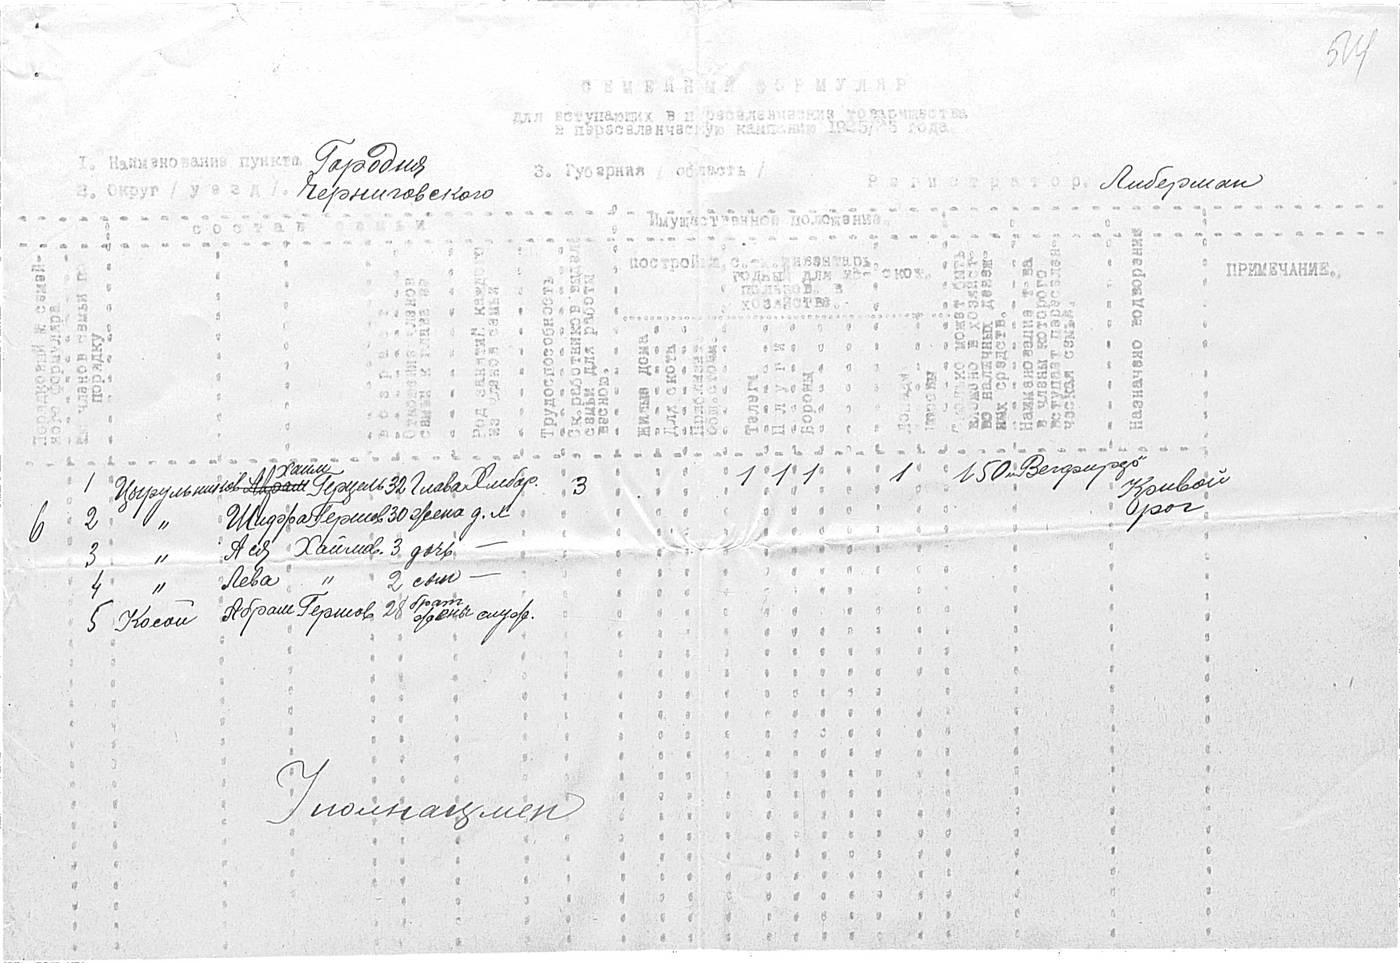 514
СЕМЕЙНЫЙ ФОРМУЛЯР
для вступающих в переселенческие товарищества
в переселенческую кампанию 1925/26 года
1. Наименование пункта Городня
2. Округ / уезд /. Черниговского
3. Губерния / область /
Регистратор. Либерман
состав семьи
Имущественное положение.
Порядковый № семейного формуляра
№№ членов семьи по порядку
возраст
Отношение членов семьи к главе ее
Род занятий каждого из членов семьи
Трудоспособность
Ск. работников выдел. семьи для работы весною.
постройки
с.-х. инвентарь, годный для использов. в хозяйстве.
скот.
Жилые дома
Для скота
Телеги
Плуги
Бороны
Лошади
Коровы
Сколько может быть вложено в хозяйство наличных денежных средств.
Наименование т-ва в члены которого вступает переселенческая семья.
Назначено водворение
ПРИМЕЧАНИЕ.
6 1 Цырульников Абрам Хаим Герцель 32 Глава Хлебор. 3 1 1 1 1 150 „Вегфирер" Кривой рог
2 „ Шифра Гершов 30 жена д. х
3 „ Ася Хаймов. 3 дочь —
4 „ Лева „ 2 сын —
5 Косой Абрам Гершов 28 брат жены служ.
Уполнацмен